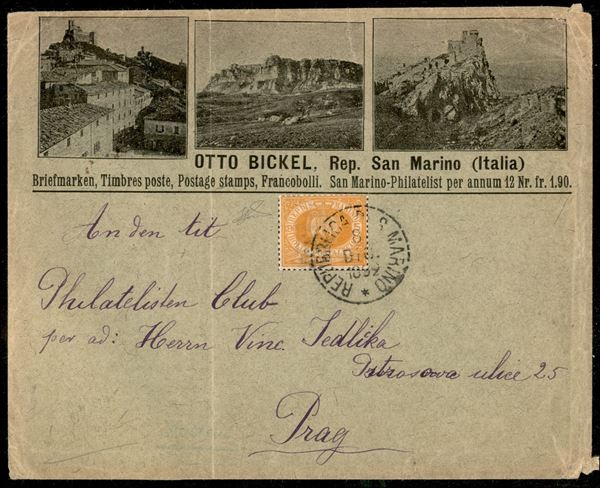 OTTO BICKEL, Rep. San Marino (Italia)
Briefmarken, Timbres poste, Postage stamps, Francobolli. San Marino-Philatelist per annum 12 Nr. fr. 1.90.
REPUBBLICA DI S. MARINO
8
DIC.
1899
An den tit
Philatelisten Club
per ad: Herrn Vinc. Jedlička
ulice 25
Prag